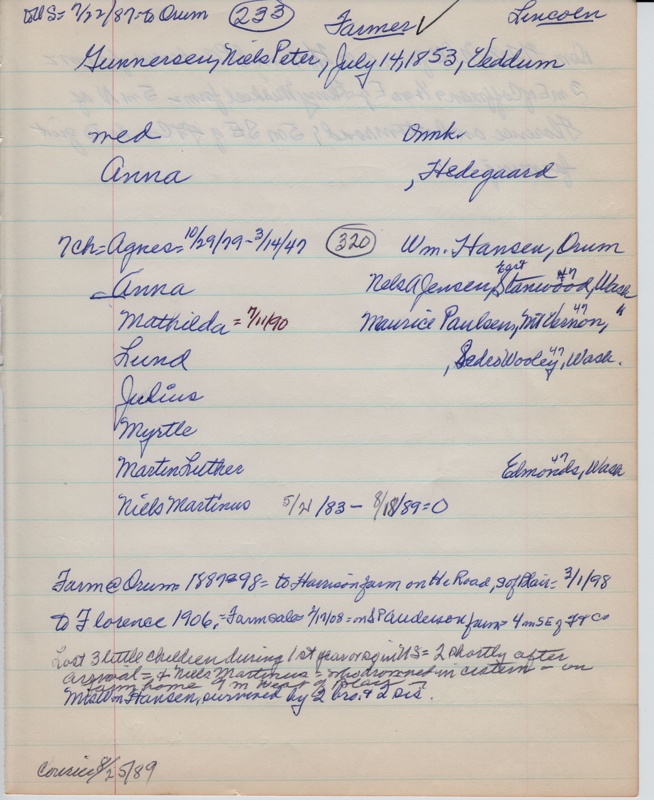 to US= 7/22/87= to Orum (233) Farmer ✓ Lincoln
Gunnersen, Niels Peter, July 14, 1853, Veddum
med Dmk.
Anna , Hedegaard
7 ch= Agnes= 10/29/79 - 3/14/47 (320) Wm. Hansen, Orum
Anna Nels A Jensen, Stanwood, Wash 47
Mathilda = 7/11/90 Maurice Paulsen, Mt Vernon, " 47
Lund , Sedro Wooley, Wash. 47
Julius
Myrtle
Martin Luther Edmonds, Wash 47
Niels Martinus 5/21/83 - 8/18/89=0
Farm @ Orum= 1887-98= to Harrison farm on Hi Road, S of Blair= 3/1/98
to Florence 1906,= Farm sale= 2/17/08= on S P Anderson farm= 4 m SE of Ft C
Lost 3 little children during 1st year or so in US= 2 shortly after
arrival= & Niels Martinus = who drowned in cistern = on
farm home 9 m West of Blair
Mrs Wm Hansen, survived by 2 bro. & 2 sis.
Courier 8/25/89